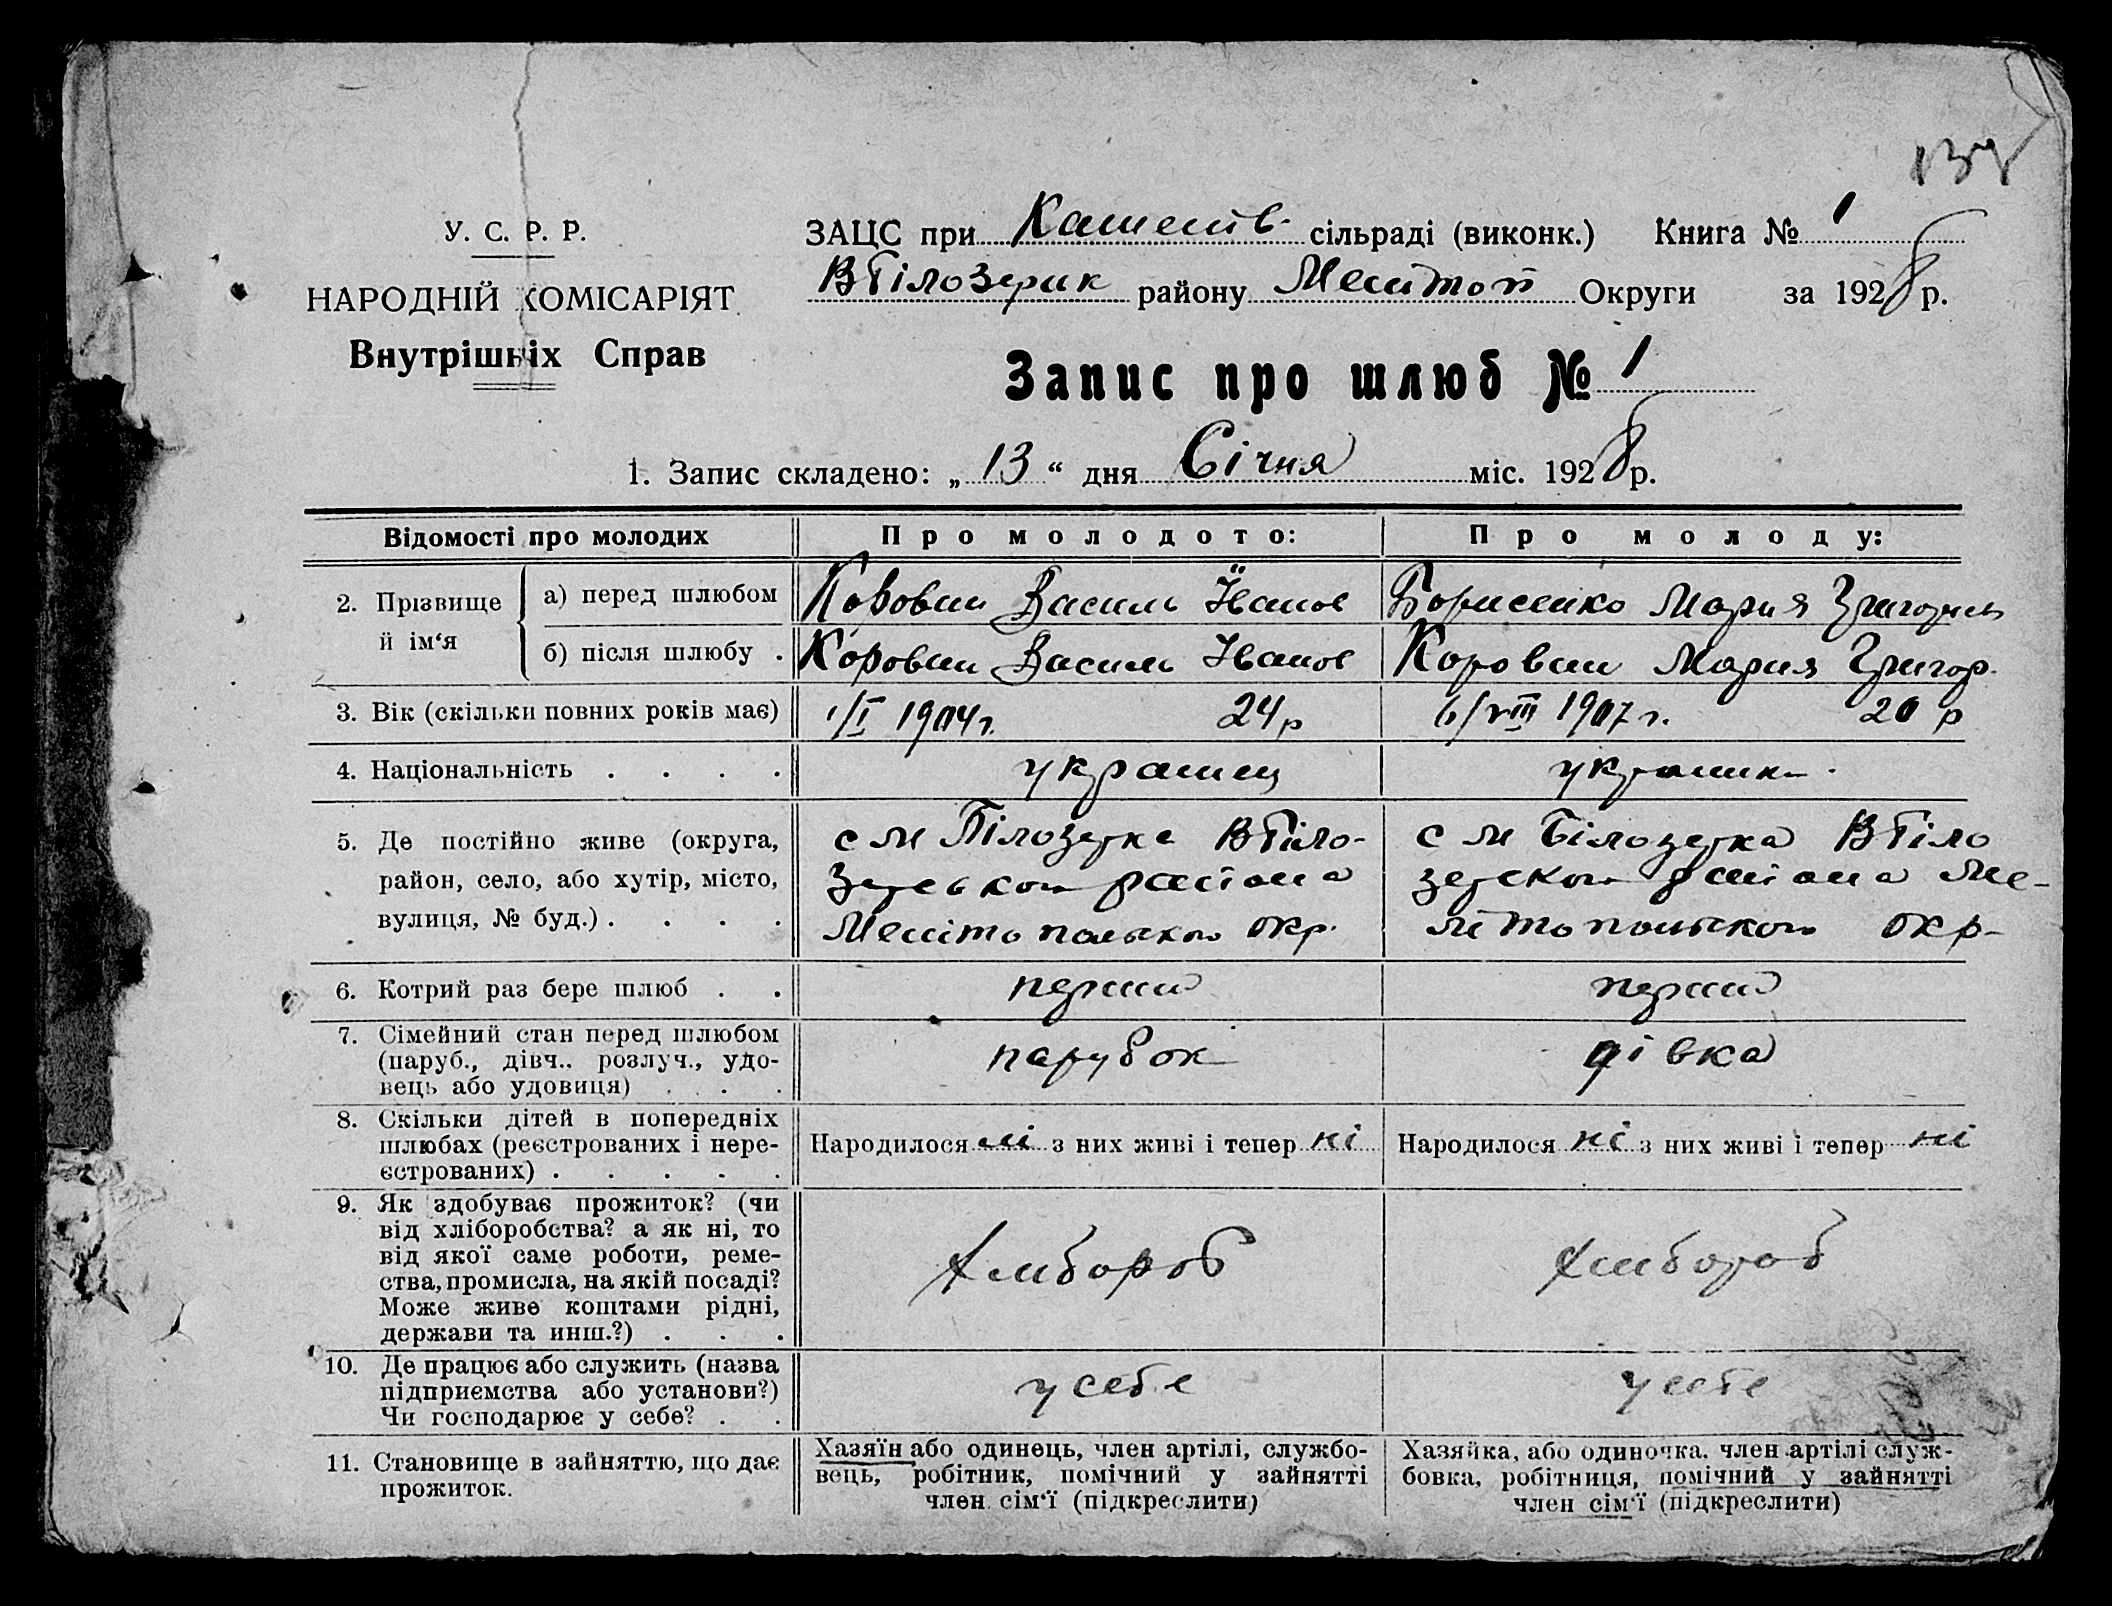 У. С. Р. Р.
НАРОДНІЙ КОМІСАРІЯТ
Внутрішніх Справ
ЗАЦС при сільраді (виконк.) Книга № 1
ВБілозерик району Меліտոп Округи за 1928 р.
Запис про шлюб № 1
1. Запис складено: „ 13 “ дня Січня міс. 1928 р.
Відомості про молодих
Про молодого:
Про молоду:
2. Прізвище й ім‘я
а) перед шлюбом
Василь Іванов
Борисенко Мария
б) після шлюбу .
Василь Іванов
Мария Григор.
3. Вік (скільки повних років має)
1/I 1904 г. 24 р
6/VIII 1907 г. 20 р
4. Національність . . . .
украинец
5. Де постійно живе (округа,
район, село, або хутір, місто,
вулиця, № буд.) . . . .
с М Білозерка ВБіло-
зерського района
Мелітопольского окр.
с М Білозерка ВБіло
зерского района Ме-
літопольского окр-
6. Котрий раз бере шлюб . .
перший
перший
7. Сімейний стан перед шлюбом
(паруб., дівч.. розлуч., удо-
вець або удовиця) . . .
парубок
дівка
8. Скільки дітей в попередніх
шлюбах (реєстрованих і нере-
єстрованих) . . . . .
Народилося ні з них живі і тепер ні
Народилося ні з них живі і тепер ні
9. Як здобуває прожиток? (чи
від хліборобства? а як ні, то
від якої саме роботи, реме-
ства, промисла, на якій посаді?
Може живе коштами рідні,
держави та инш.?) . . .
хлибороб
хлибороб
10. Де працює або служить (назва
підприємства або установи?)
Чи господарює у себе? . .
у себе
у себе
11. Становище в зайняттю, що дає
прожиток.
Хазяїн або одинець, член артілі, службо-
вець, робітник, помічний у зайнятті
член сім‘ї (підкреслити)
Хазяйка, або одиночка. член артілі служ-
бовка, робітниця, помічний у зайнятті
член сім‘ї (підкреслити)